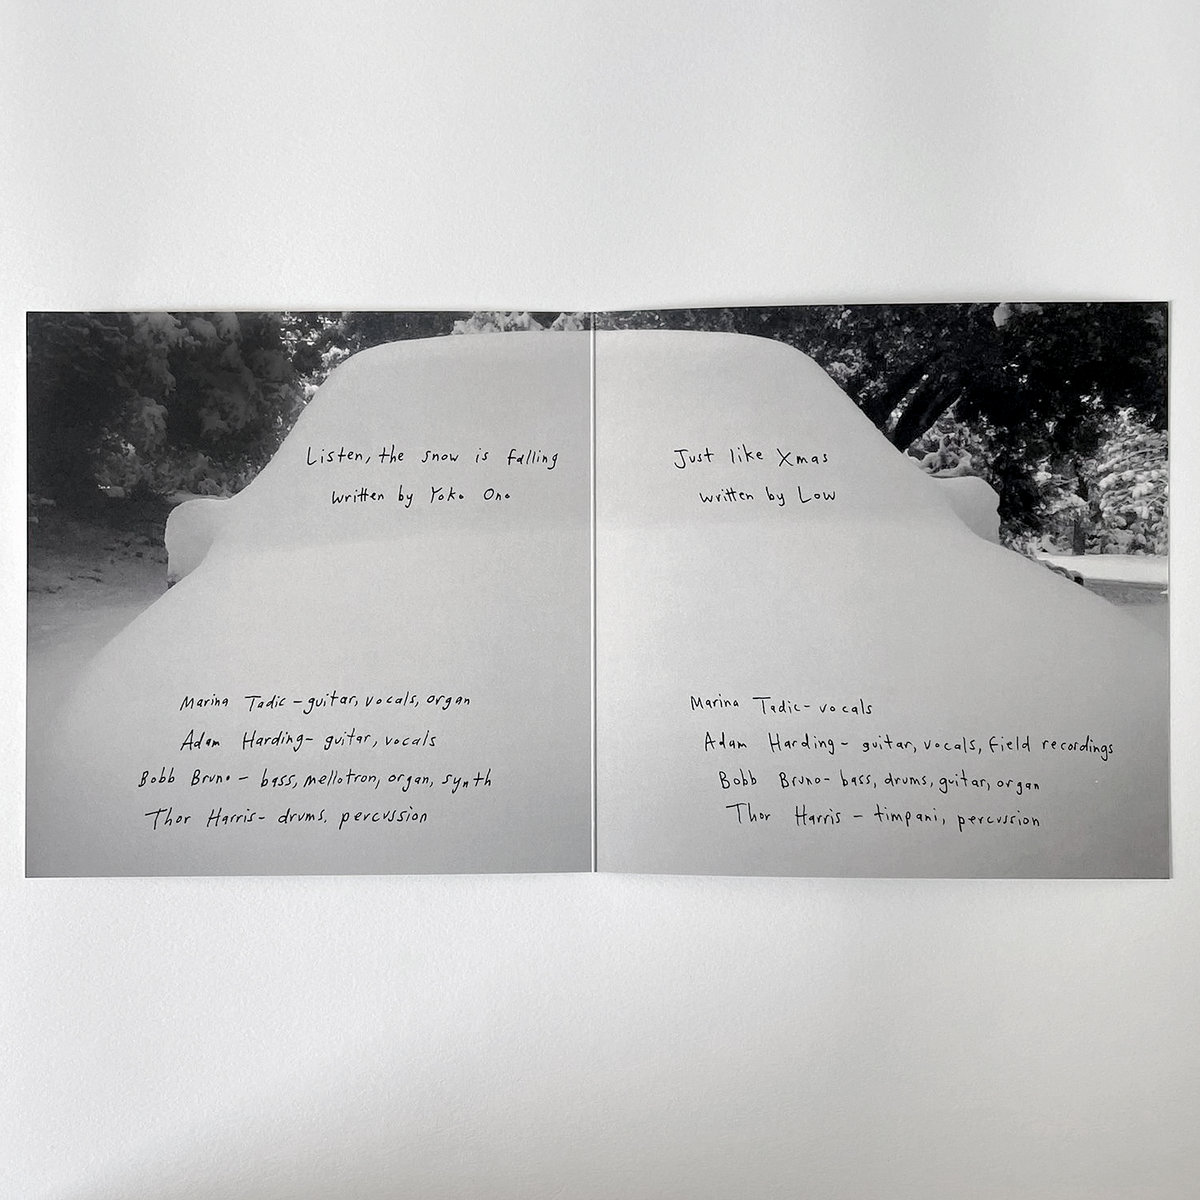 Listen, the snow is falling
written by Yoko Ono
Marina Tadic - guitar, vocals, organ
Adam Harding - guitar, vocals
Bobb Bruno - bass, mellotron, organ, synth
Thor Harris - drums, percussion
Just like Xmas
written by Low
Marina Tadic - vocals
Adam Harding - guitar, vocals, field recordings
Bobb Bruno - bass, drums, guitar, organ
Thor Harris - timpani, percussion